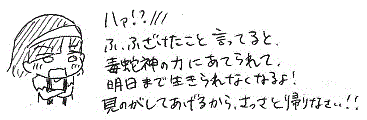 ハァ!?///
ふ、ふざけたこと言ってると、
毒蛇神の力にあてられて、
明日まで生きられなくなるよ!
見のがしてあげるから、さっさと帰りなさい!!